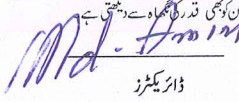 ن کو بھی قدر کی نگاہ سے دیکھتی ہے
Md.
ڈائریکٹرز